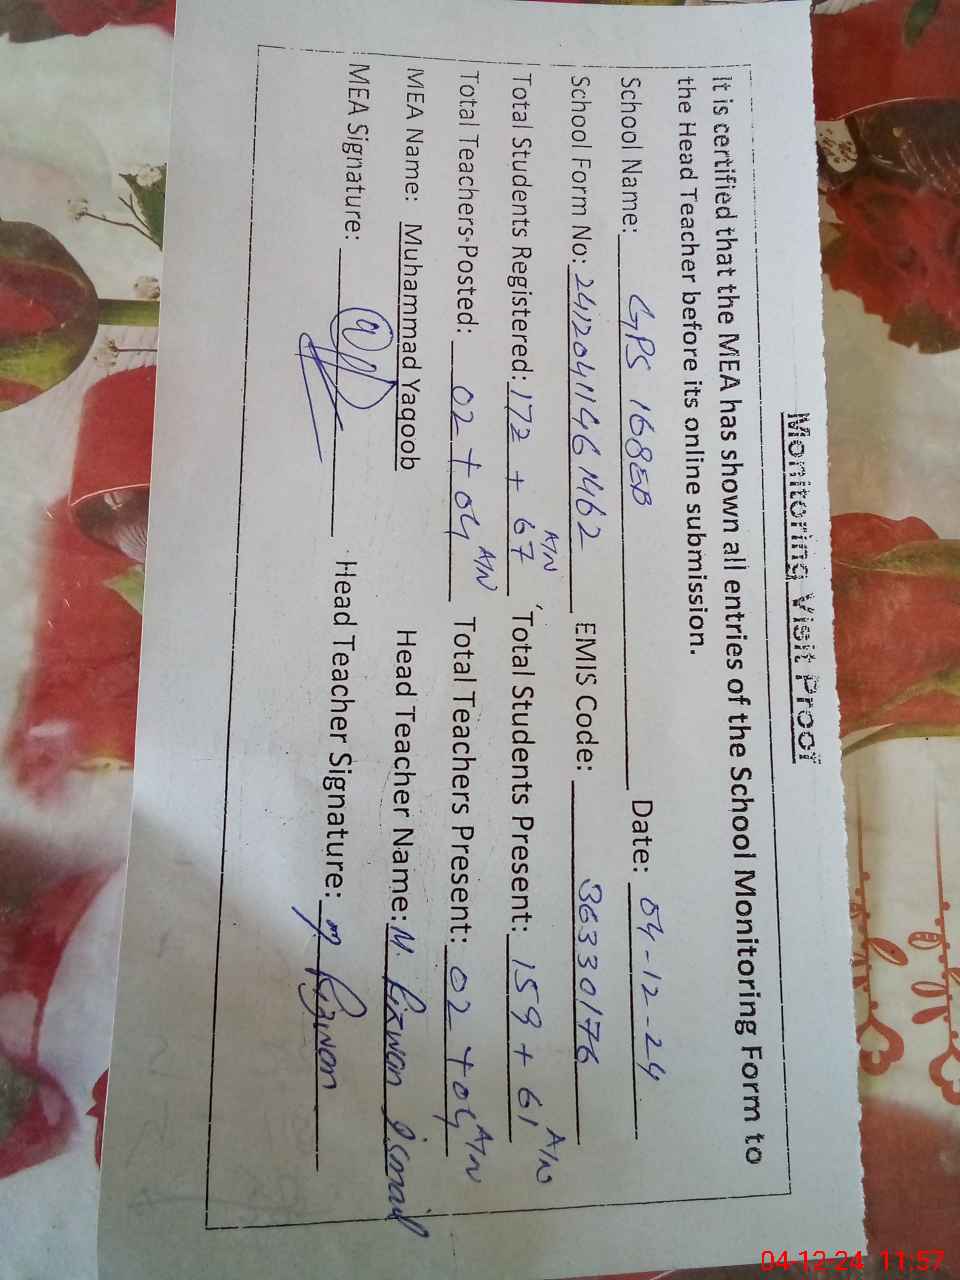 Monitoring Visit Proof
It is certified that the MEA has shown all entries of the School Monitoring Form to
the Head Teacher before its online submission.
School Name: GPS 168EB Date: 04-12-24
School Form No: 24120411461462 EMIS Code: 36330176
Total Students Registered: 172 + 67 A/N Total Students Present: 159 + 61 A/N
Total Teachers Posted: 02 + 04 A/N Total Teachers Present: 02 + 04 A/N
MEA Name: Muhammad Yaqoob Head Teacher Name: M. Rizwan Ismail
MEA Signature: Head Teacher Signature: M. Rizwan
04-12-24 11:57